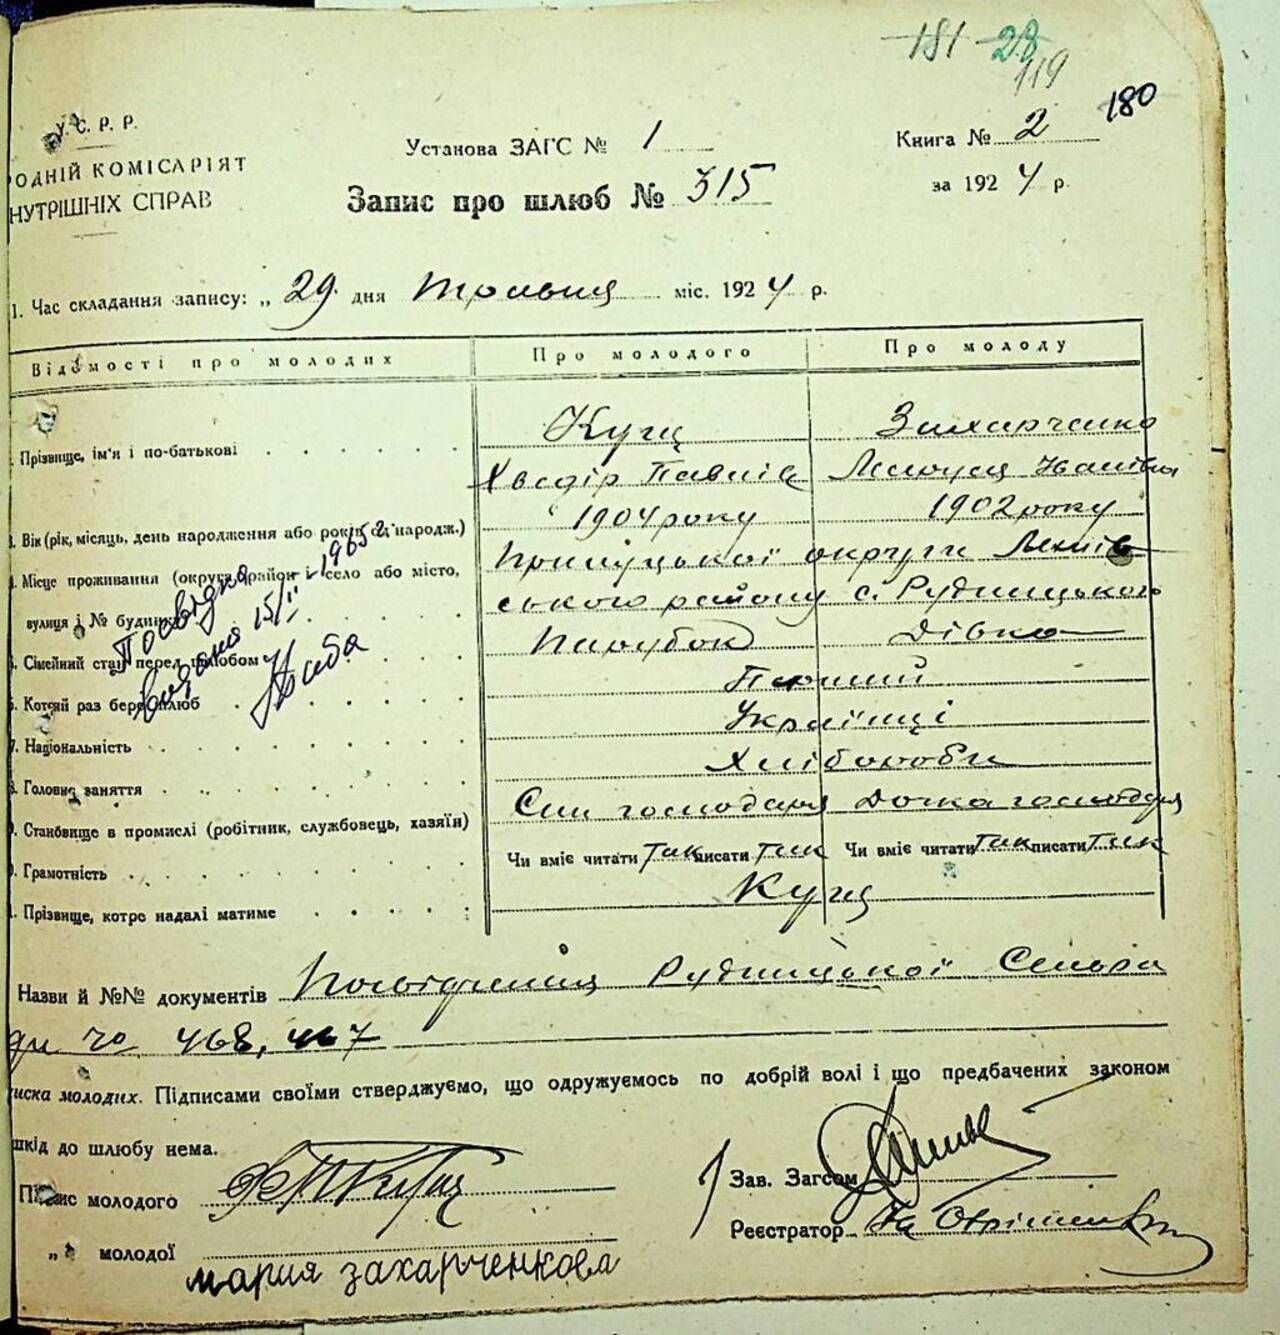 181 28
119
180
У.С.Р.Р.
ОДНІЙ КОМІСАРІЯТ
НУТРІШНІХ СПРАВ
Установа ЗАГС № 1
Книга № 2
Запис про шлюб № 315
за 1924 р.
1. Час складання запису: „ 29 дня Травня міс. 1924 р.
Відомості про молодих Про молодого Про молоду
Прізвище, ім'я і по-батькові
Куц Захарченко
Хведір Павлів Маруся Іванівна
Вік (рік, місяць, день народження або років од народж.) 1904 року 1902 року
Місце проживання (округа, район і село або місто,
вулиця і № будинку)
Прилуцької округи
ського району с. Рудницького
Сімейний стан перед шлюбом Парубок Дівка
Котрий раз бере шлюб Перший
7. Національність Українці
8. Головне заняття Хлібороби
9. Становище в промислі (робітник, службовець, хазяїн) Син господаря Дочка господаря
Грамотність Чи вміє читати Так писати Так Чи вміє читати Так писати Так
Прізвище, котре надалі матиме Куц
Посвідка
видано 15/II 1965
Назви й №№ документів Посвідчення Рудницької Сельра
ди 468, 467
иска молодих. Підписами своїми стверджуємо, що одружуємось по добрій волі і що предбачених законом
шкід до шлюбу нема.
Підпис молодого
Зав. Загсом
Реєстратор
„ молодої мария захарченкова